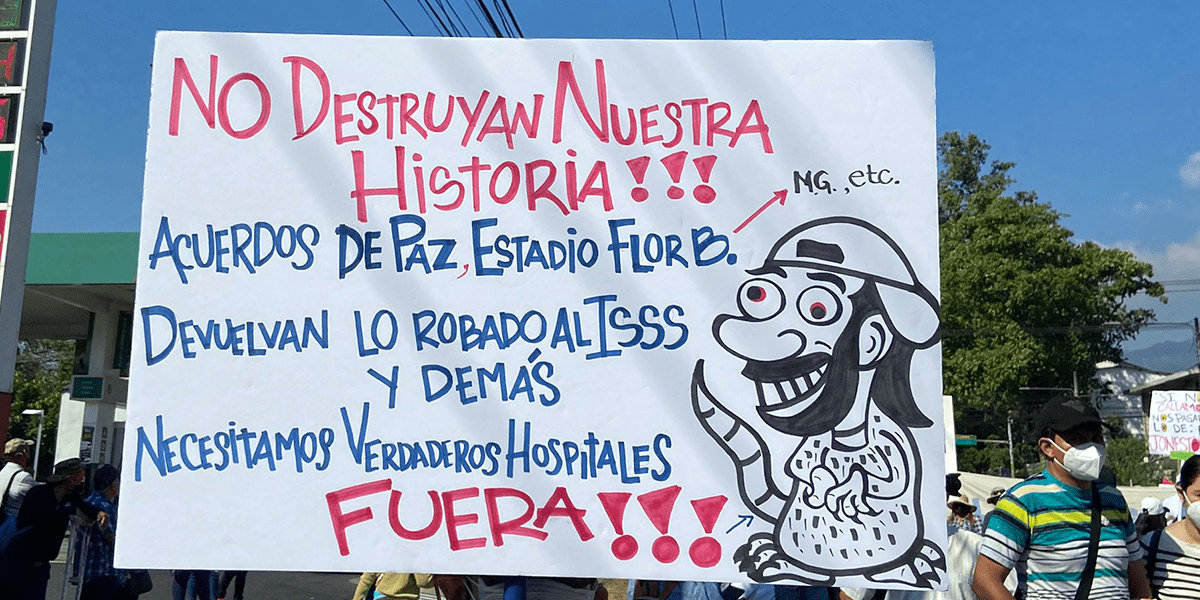 No Destruyan Nuestra
Historia!!!
M.G., etc.
Acuerdos de Paz, Estadio Flor B.
Devuelvan lo robado al ISSS
y demás
Necesitamos Verdaderos Hospitales
Fuera!!!
SI NOS
CALLAMOS
NOS PASA
LO DE:
JONESTO